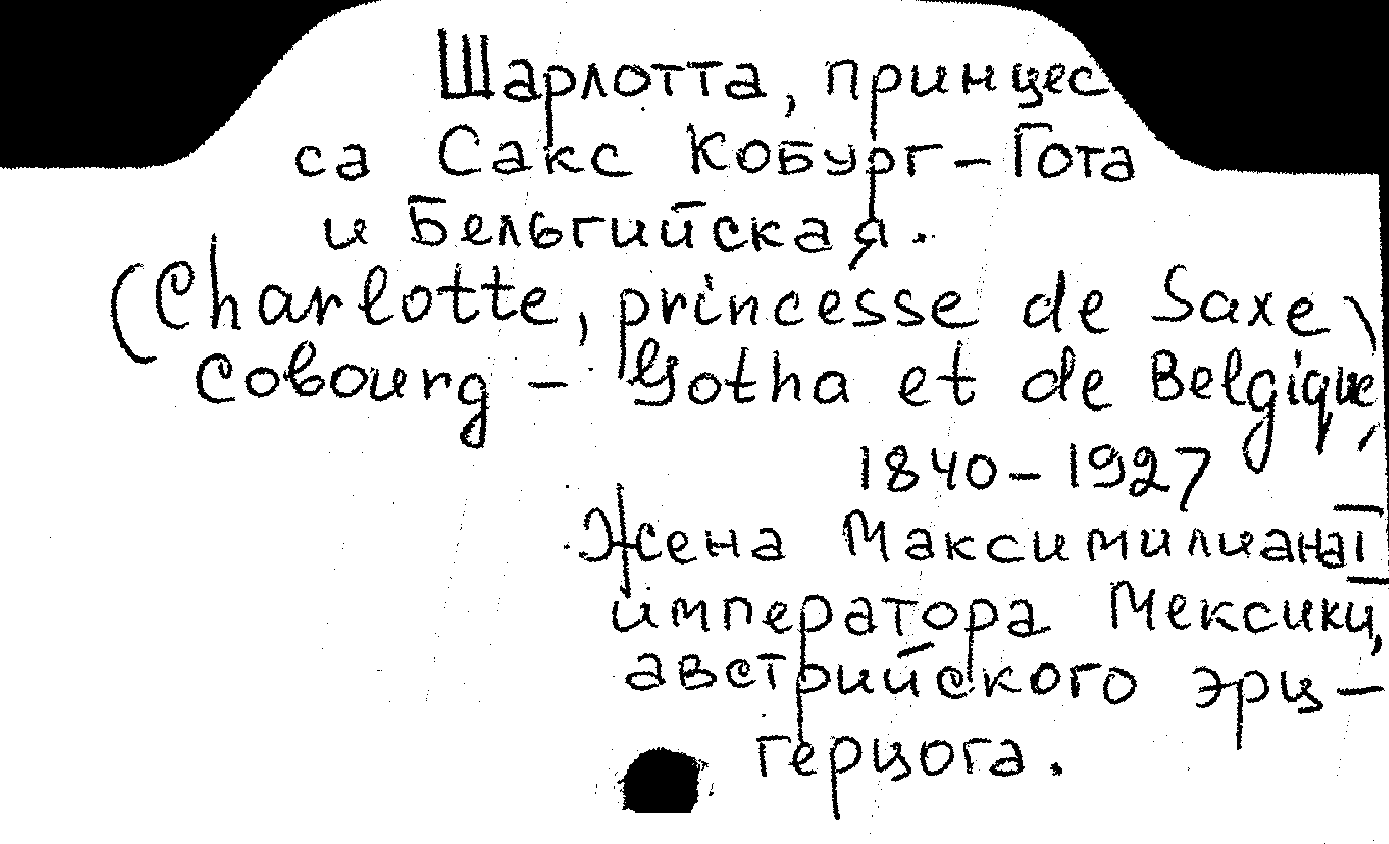 Шарлотта, принцес
са Сакс Кобург-Гота
и Бельгийская.
(Charlotte, princésse de Saxe
Cobourg - Gotha et de Belgique)
1840-1927
Жена Максимилиана I
императора Мексики,
австрийского эрц-
герцога.